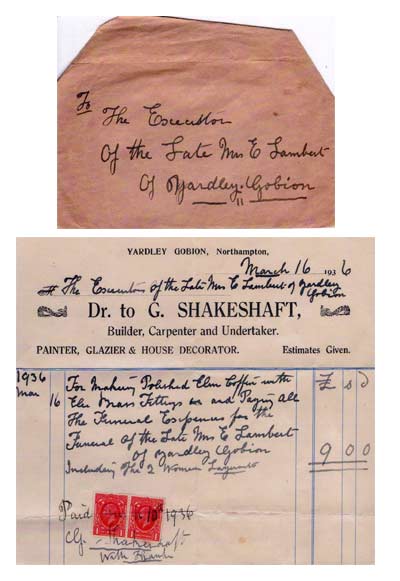 To
The Executors
Of the Late Mrs E Lambert
Of Yardley Gobion
YARDLEY GOBION, Northampton,
March 16 1936
The Executors of the Late Mrs E Lambert of Yardley
Gobion
Dr. to G. SHAKESHAFT,
Builder, Carpenter and Undertaker.
PAINTER, GLAZIER & HOUSE DECORATOR. Estimates Given.
1936 For Making Polished Elm Coffin with £ s d
Mar 16 Brass Fittings and Paying All
The Funeral Expenses for the
Funeral Of the Late Mrs E Lambert
Of Yardley Gobion 9 0 0
Including The 2 Women
Paid 1936
G. Shakeshaft
With Thanks